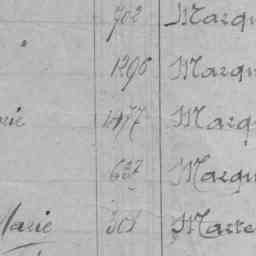 702 Marqu
" 1296 Marqu
rie 1477 Marqu
637 Marqu
Marie 301 Marte